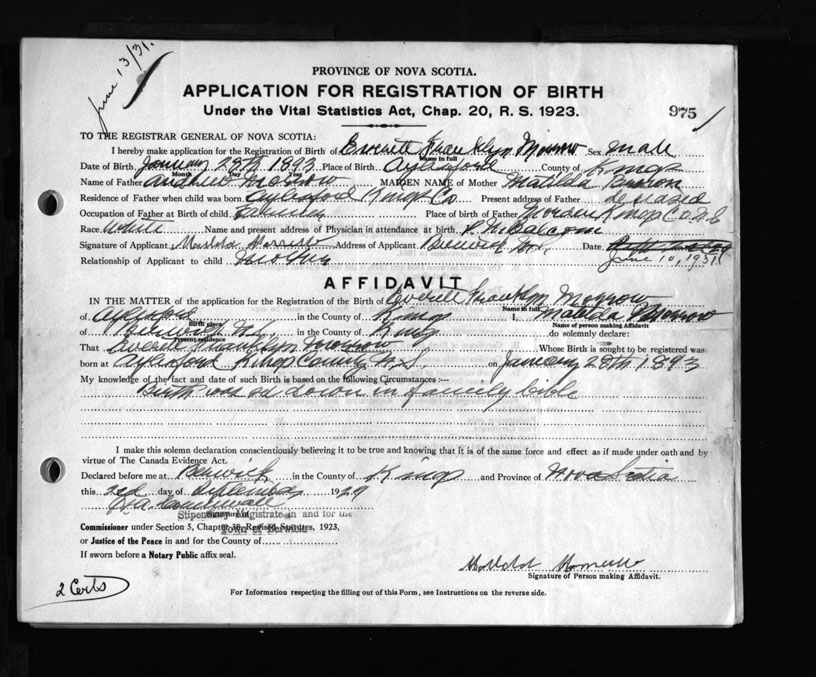 June 13/31.
PROVINCE OF NOVA SCOTIA.
APPLICATION FOR REGISTRATION OF BIRTH
Under the Vital Statistics Act, Chap. 20, R. S. 1923.
975
TO THE REGISTRAR GENERAL OF NOVA SCOTIA:
I hereby make application for the Registration of Birth of Everett Franklyn Morrow Sex male
Name in full
Date of Birth January 28th 1893 Place of Birth Aylesford County of Kings
Month Day Year
Name of Father Andrew Morrow MAIDEN NAME of Mother Matilda
Residence of Father when child was born Aylesford Kings Co Present address of Father deceased
Occupation of Father at Birth of child Place of birth of Father Morden Kings Co N.S
Race White Name and present address of Physician in attendance at birth Balcom
Signature of Applicant Address of Applicant Berwick N.S. Date June 10, 1931.
Relationship of Applicant to child Mother
AFFIDAVIT
IN THE MATTER of the application for the Registration of the Birth of Everett Franklyn Morrow
Name in full
of Aylesford in the County of Kings I, Matilda Morrow
Birth place Name of person making Affidavit
of Berwick N.S. in the County of Kings do solemnly declare:
Present residence
That Everett Franklyn Morrow Whose Birth is sought to be registered was
born at Aylesford Kings County N.S. on January 28th 1893
My knowledge of the fact and date of such Birth is based on the following Circumstances :—
Birth was down in family bible
I make this solemn declaration conscientiously believing it to be true and knowing that it is of the same force and effect as if made under oath and by
virtue of The Canada Evidence Act.
Declared before me at Berwick in the County of Kings and Province of Nova Scotia
this day of September 1929
Stipendiary Magistrate in and for the
Town of Berwick
Commissioner under Section 5, Chapter 38, Revised Statutes, 1923,
or Justice of the Peace in and for the County of
If sworn before a Notary Public affix seal.
Signature of Person making Affidavit.
2 Certs
For Information respecting the filling out of this Form, see Instructions on the reverse side.